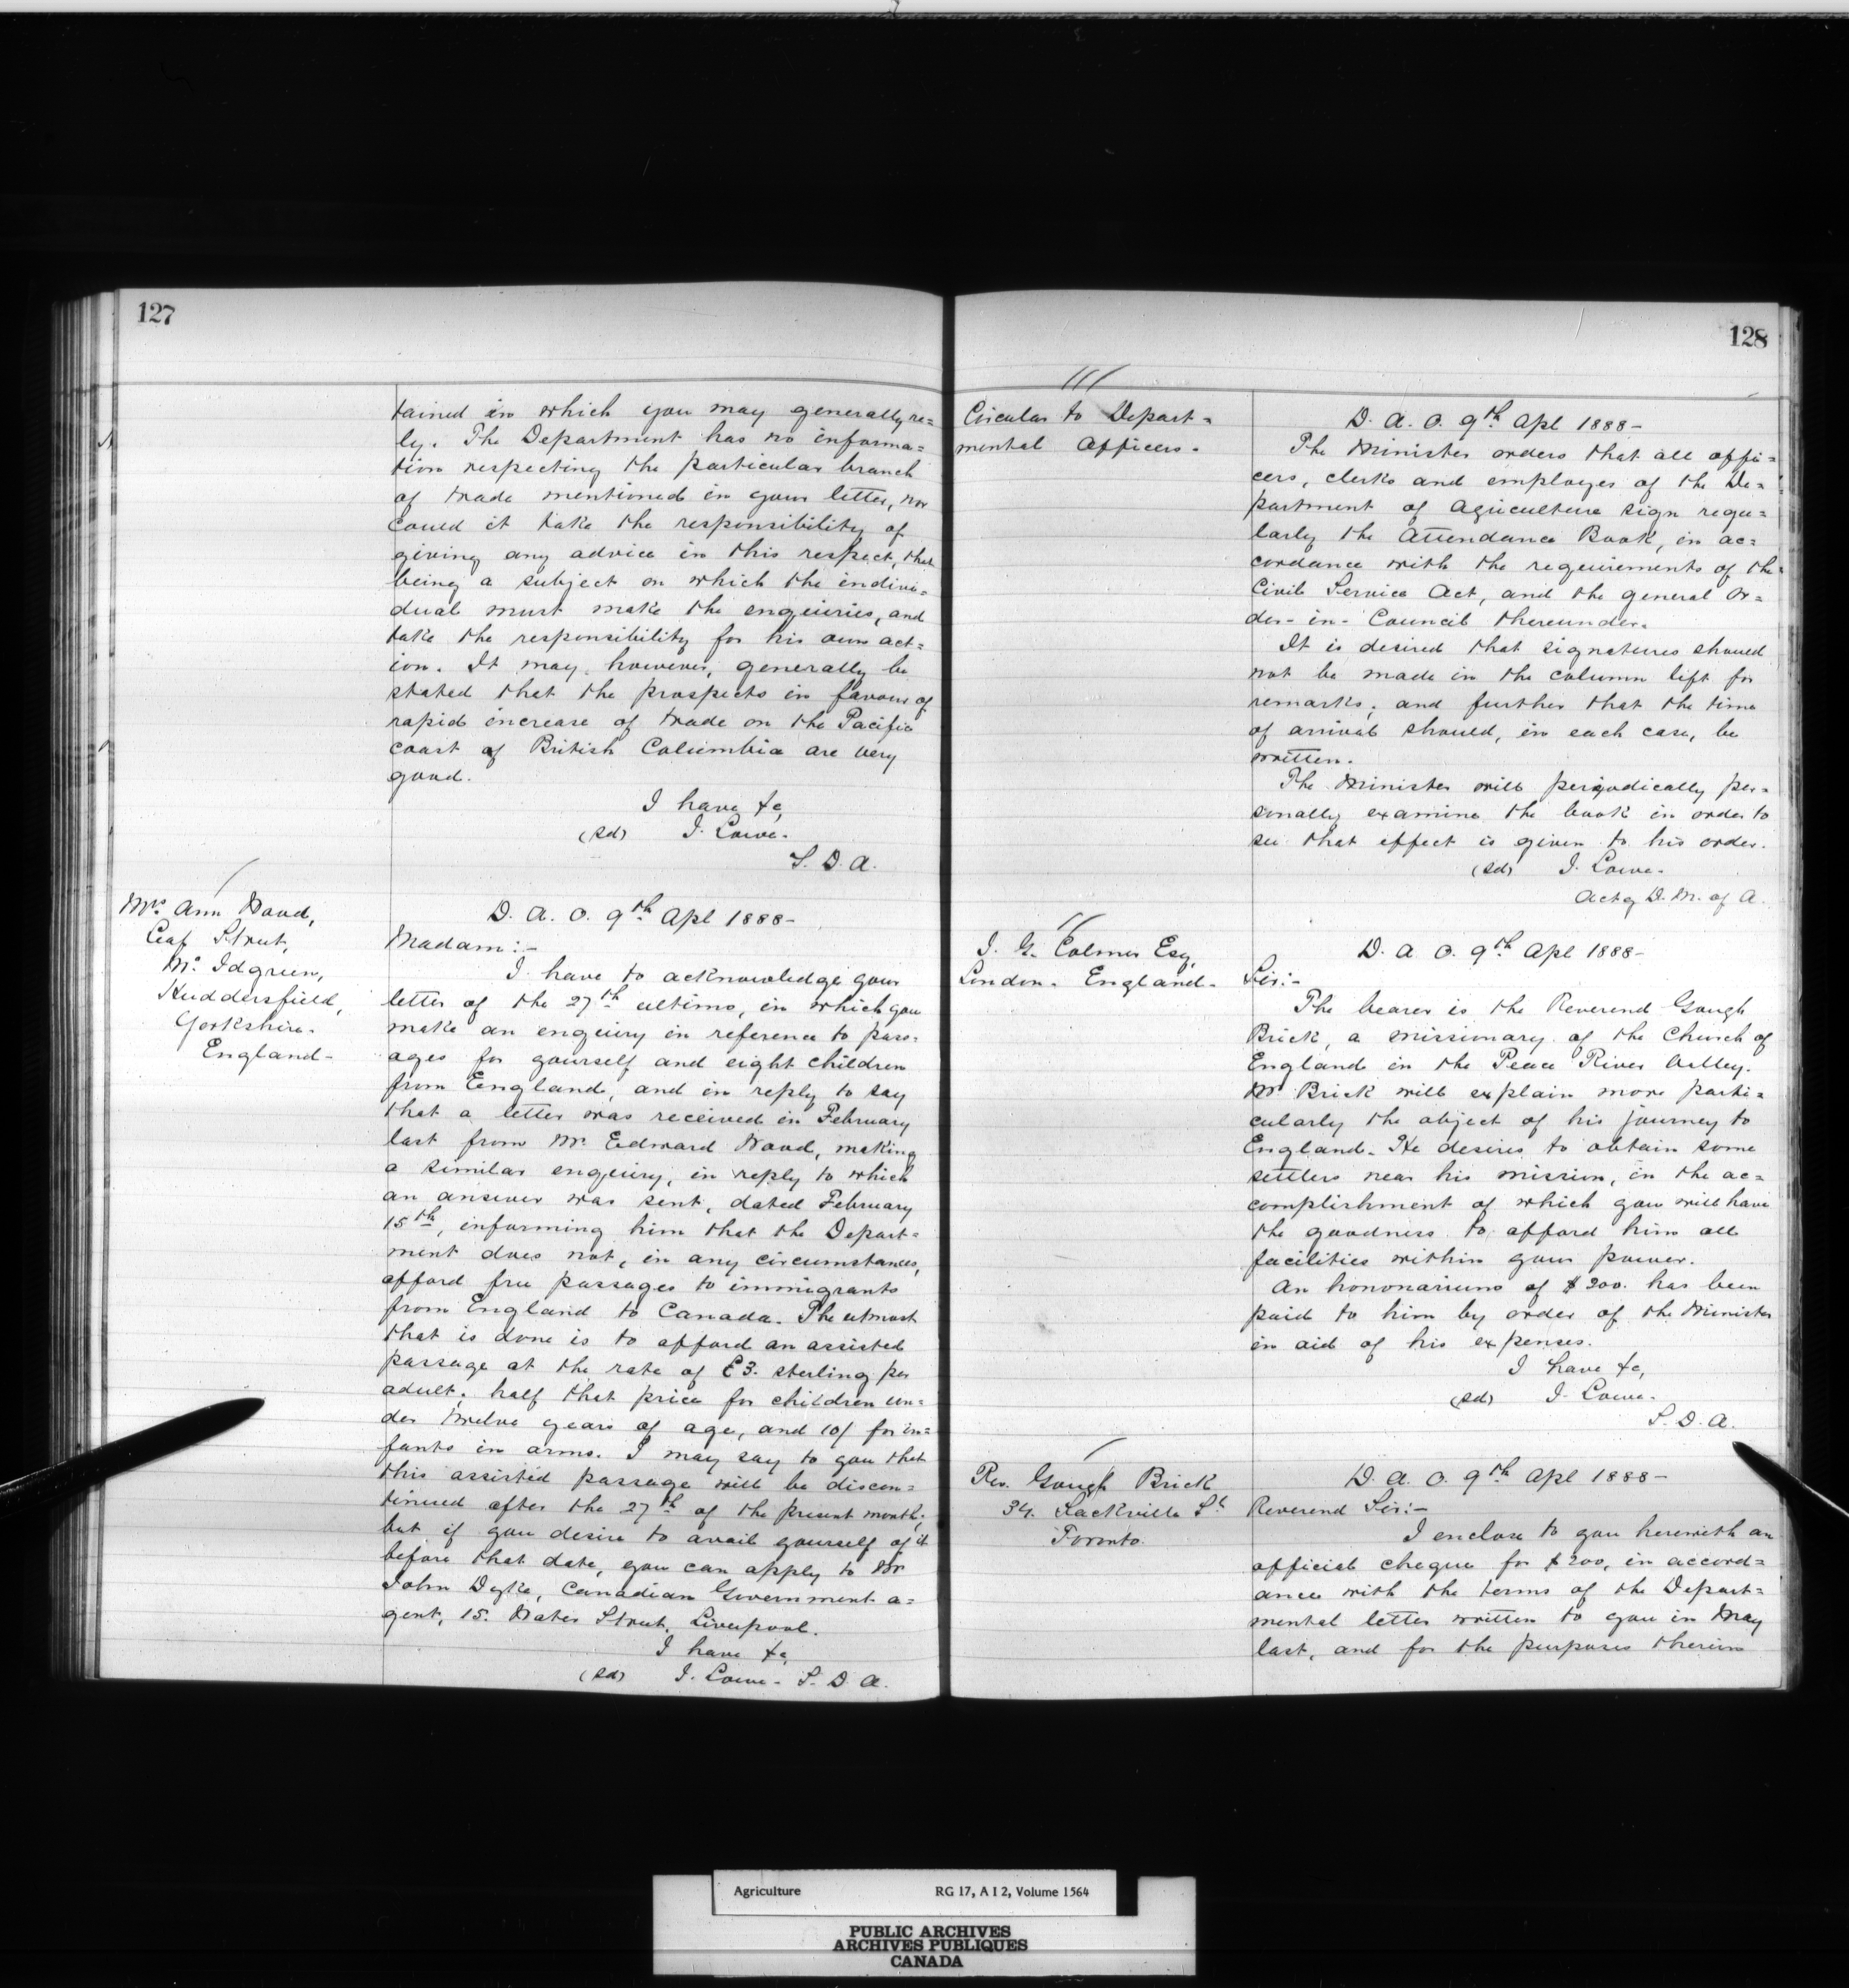 127
tained in which you may generally re=
ly. The Department has no informa=
tion respecting the particular branch
of trade mentioned in your letter, nor
could it take the responsibility of
giving any advice in this respect, that
being a subject on which the indivi=
dual must make the enquiries, and
take the responsibility for his own act=
ion. It may, however, generally be
stated that the prospects in favour of
rapid increase of trade on the Pacific
coast of British Columbia are very
good.
I have &c,
(sd) J. Lowe.
S. D. A.
Mrs. Ann Wood,
Leaf Street,
Mr. Idgreen,
Huddersfield,
Yorkshire.
England-
D. A. O. 9th Apl 1888-
Madam:-
I have to acknowledge your
letter of the 27th ultimo, in which you
make an enquiry in reference to pass=
ages for yourself and eight children
from England, and in reply to say
that a letter was received in February
last from Mr. Edward Wood, making
a similar enquiry, in reply to which
an answer was sent, dated February
15th, informing him that the Depart=
ment does not, in any circumstances,
afford free passages to immigrants
from England to Canada. The utmost
that is done is to afford an assisted
passage at the rate of £3. sterling per
adult; half that price for children un=
der twelve years of age, and 10/ for in=
fants in arms. I may say to you that
this assisted passage will be discon=
tinued after the 27th of the present month;
but if you desire to avail yourself of it
before that date, you can apply to Mr
John Dyke, Canadian Government a=
gent, 15. Water Street, Liverpool.
I have &c,
(sd) J. Lowe- S. D. A.
128
Circular to Depart=
mental Officers.
D. A. O. 9th Apl 1888-
The Minister orders that all offi=
cers, clerks and employes of the De=
partment of Agriculture sign regu=
larly the Attendance Book, in ac=
cordance with the requirements of the
Civil Service Act, and the general Or=
der-in-Council thereunder.
It is desired that signatures should
not be made in the column left for
remarks; and further that the time
of arrival should, in each case, be
written.
The Minister will periodically per=
sonally examine the book in order to
see that effect is given to his order.
(sd) J. Lowe-
Actg D. M. of A.
J. G. Colmer Esq,
London. England-
D. A. O. 9th Apl 1888-
Sir:-
The bearer is the Reverend Gough
Brick, a missionary of the Church of
England in the Peace River Valley.
Mr Brick will explain more parti=
cularly the object of his journey to
England. He desires to obtain some
settlers near his mission, in the ac=
complishment of which you will have
the goodness to afford him all
facilities within your power.
An hononarium of $200. has been
paid to him by order of the Minister
in aid of his expenses.
I have &c,
(sd) J. Lowe-
S. D. A.
Rev. Gough Brick
34. Sackville St
Toronto.
D. A. O. 9th Apl 1888-
Reverend Sir:-
I enclose to you herewith an
official cheque for $200, in accord=
ance with the terms of the Depart=
mental letter written to you in May
last, and for the purposes therein
Agriculture RG 17, A I 2, Volume 1564
PUBLIC ARCHIVES
ARCHIVES PUBLIQUES
CANADA